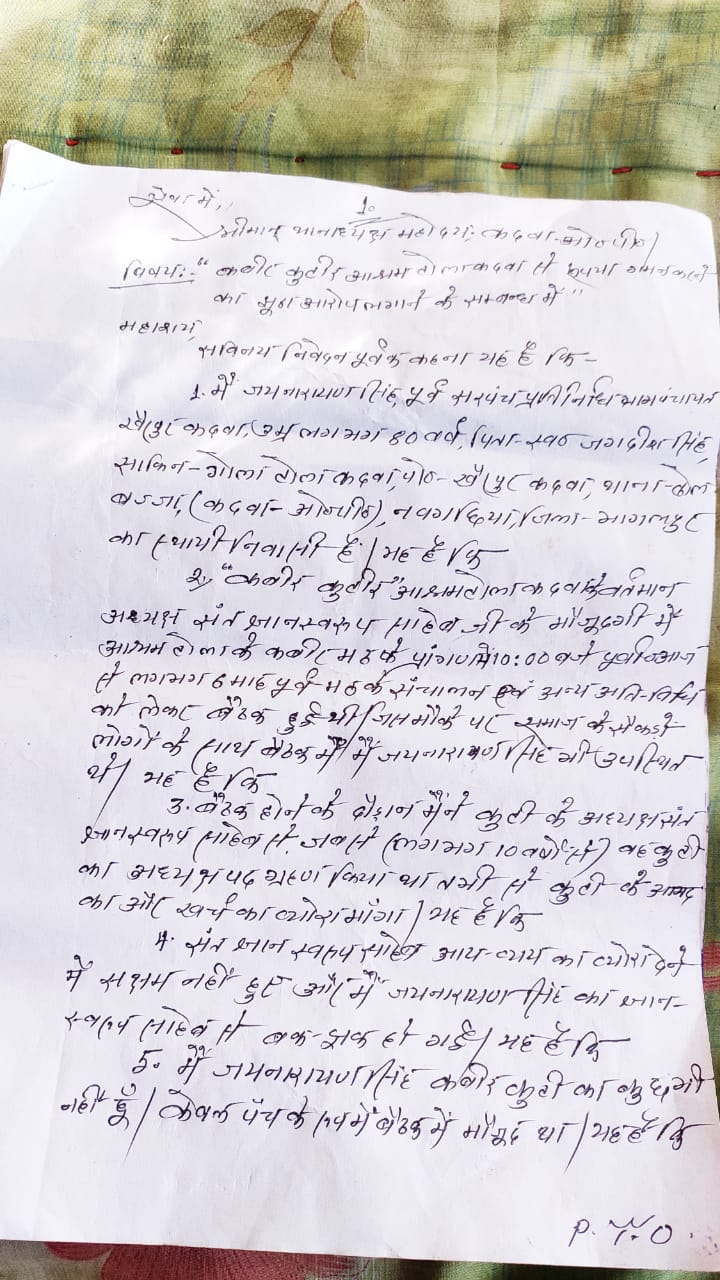 सेवा में,
10
श्रीमान् थानाध्यक्ष महोदय, कदवा-ओ०पी०।
विषय:- "कबीर कुटीर आश्रम टोला कदवा से रूपया गबन करने
का झूठा आरोप लगाने के सम्बन्ध में"
महाशय,
सविनय निवेदन पूर्वक कहना यह है कि-
1. मैं जयनारायण सिंह, पूर्व सरपंच प्रतिनिधि ग्राम पंचायत
खैरपुर कदवा, उम्र लगभग 80 वर्ष, पिता-स्व० जगदीश सिंह,
साकिन-गोला टोला कदवा, पो०-खैरपुर कदवा, थाना-ढोल
बज्जा, (कदवा-ओ०पी०), नवगछिया, जिला-भागलपुर
का स्थायी निवासी हूँ। यह है कि
2, "कबीर कुटीर" आश्रम टोला कदवा के वर्तमान
अध्यक्ष संत ज्ञानस्वरूप साहेब जी के मौजूदगी में
आश्रम टोला के कबीर मठ के प्रांगण में 10:00 बजे पूर्वा० आज
से लगभग 6 माह पूर्व मठ के संचालन एवं अन्य गति-विधि
को लेकर बैठक हुई थी जिस मौके पर समाज के सैकड़ों
लोगों के साथ बैठक में मैं जयनारायण सिंह भी उपस्थित
थे। यह है कि
3. बैठक होने के दौरान मैंने कुटी के अध्यक्ष संत
ज्ञानस्वरूप साहेब से, जब से (लगभग 10 वर्षों से) वह कुटी
का अध्यक्ष पद ग्रहण किया था तभी से कुटी के आमद
का और खर्च का व्योरा मांगा। यह है कि
4. संत ज्ञान स्वरूप साहेब आय-व्यय का व्योरा देने
में सक्षम नहीं हुए और मैं जयनारायण सिंह का ज्ञान-
स्वरूप साहेब से बक-झक हो गई। यह है कि
5. मैं जयनारायण सिंह कबीर कुटी का कुछ भी
नहीं हूँ। केवल पंच के रूप में बैठक में मौजूद था। यह है कि
P.T.O.